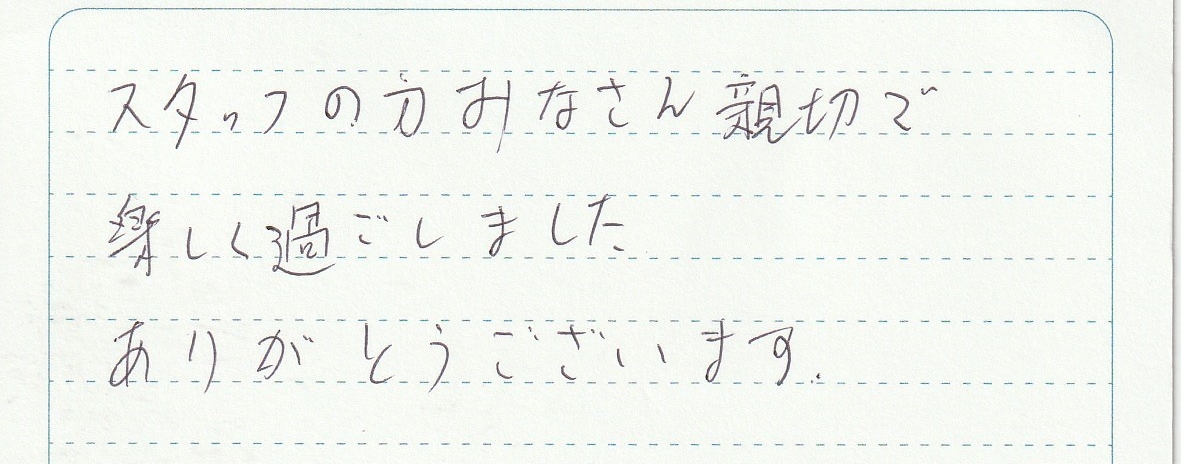 スタッフの方みなさん親切で
楽しく過ごしました
ありがとうございます.